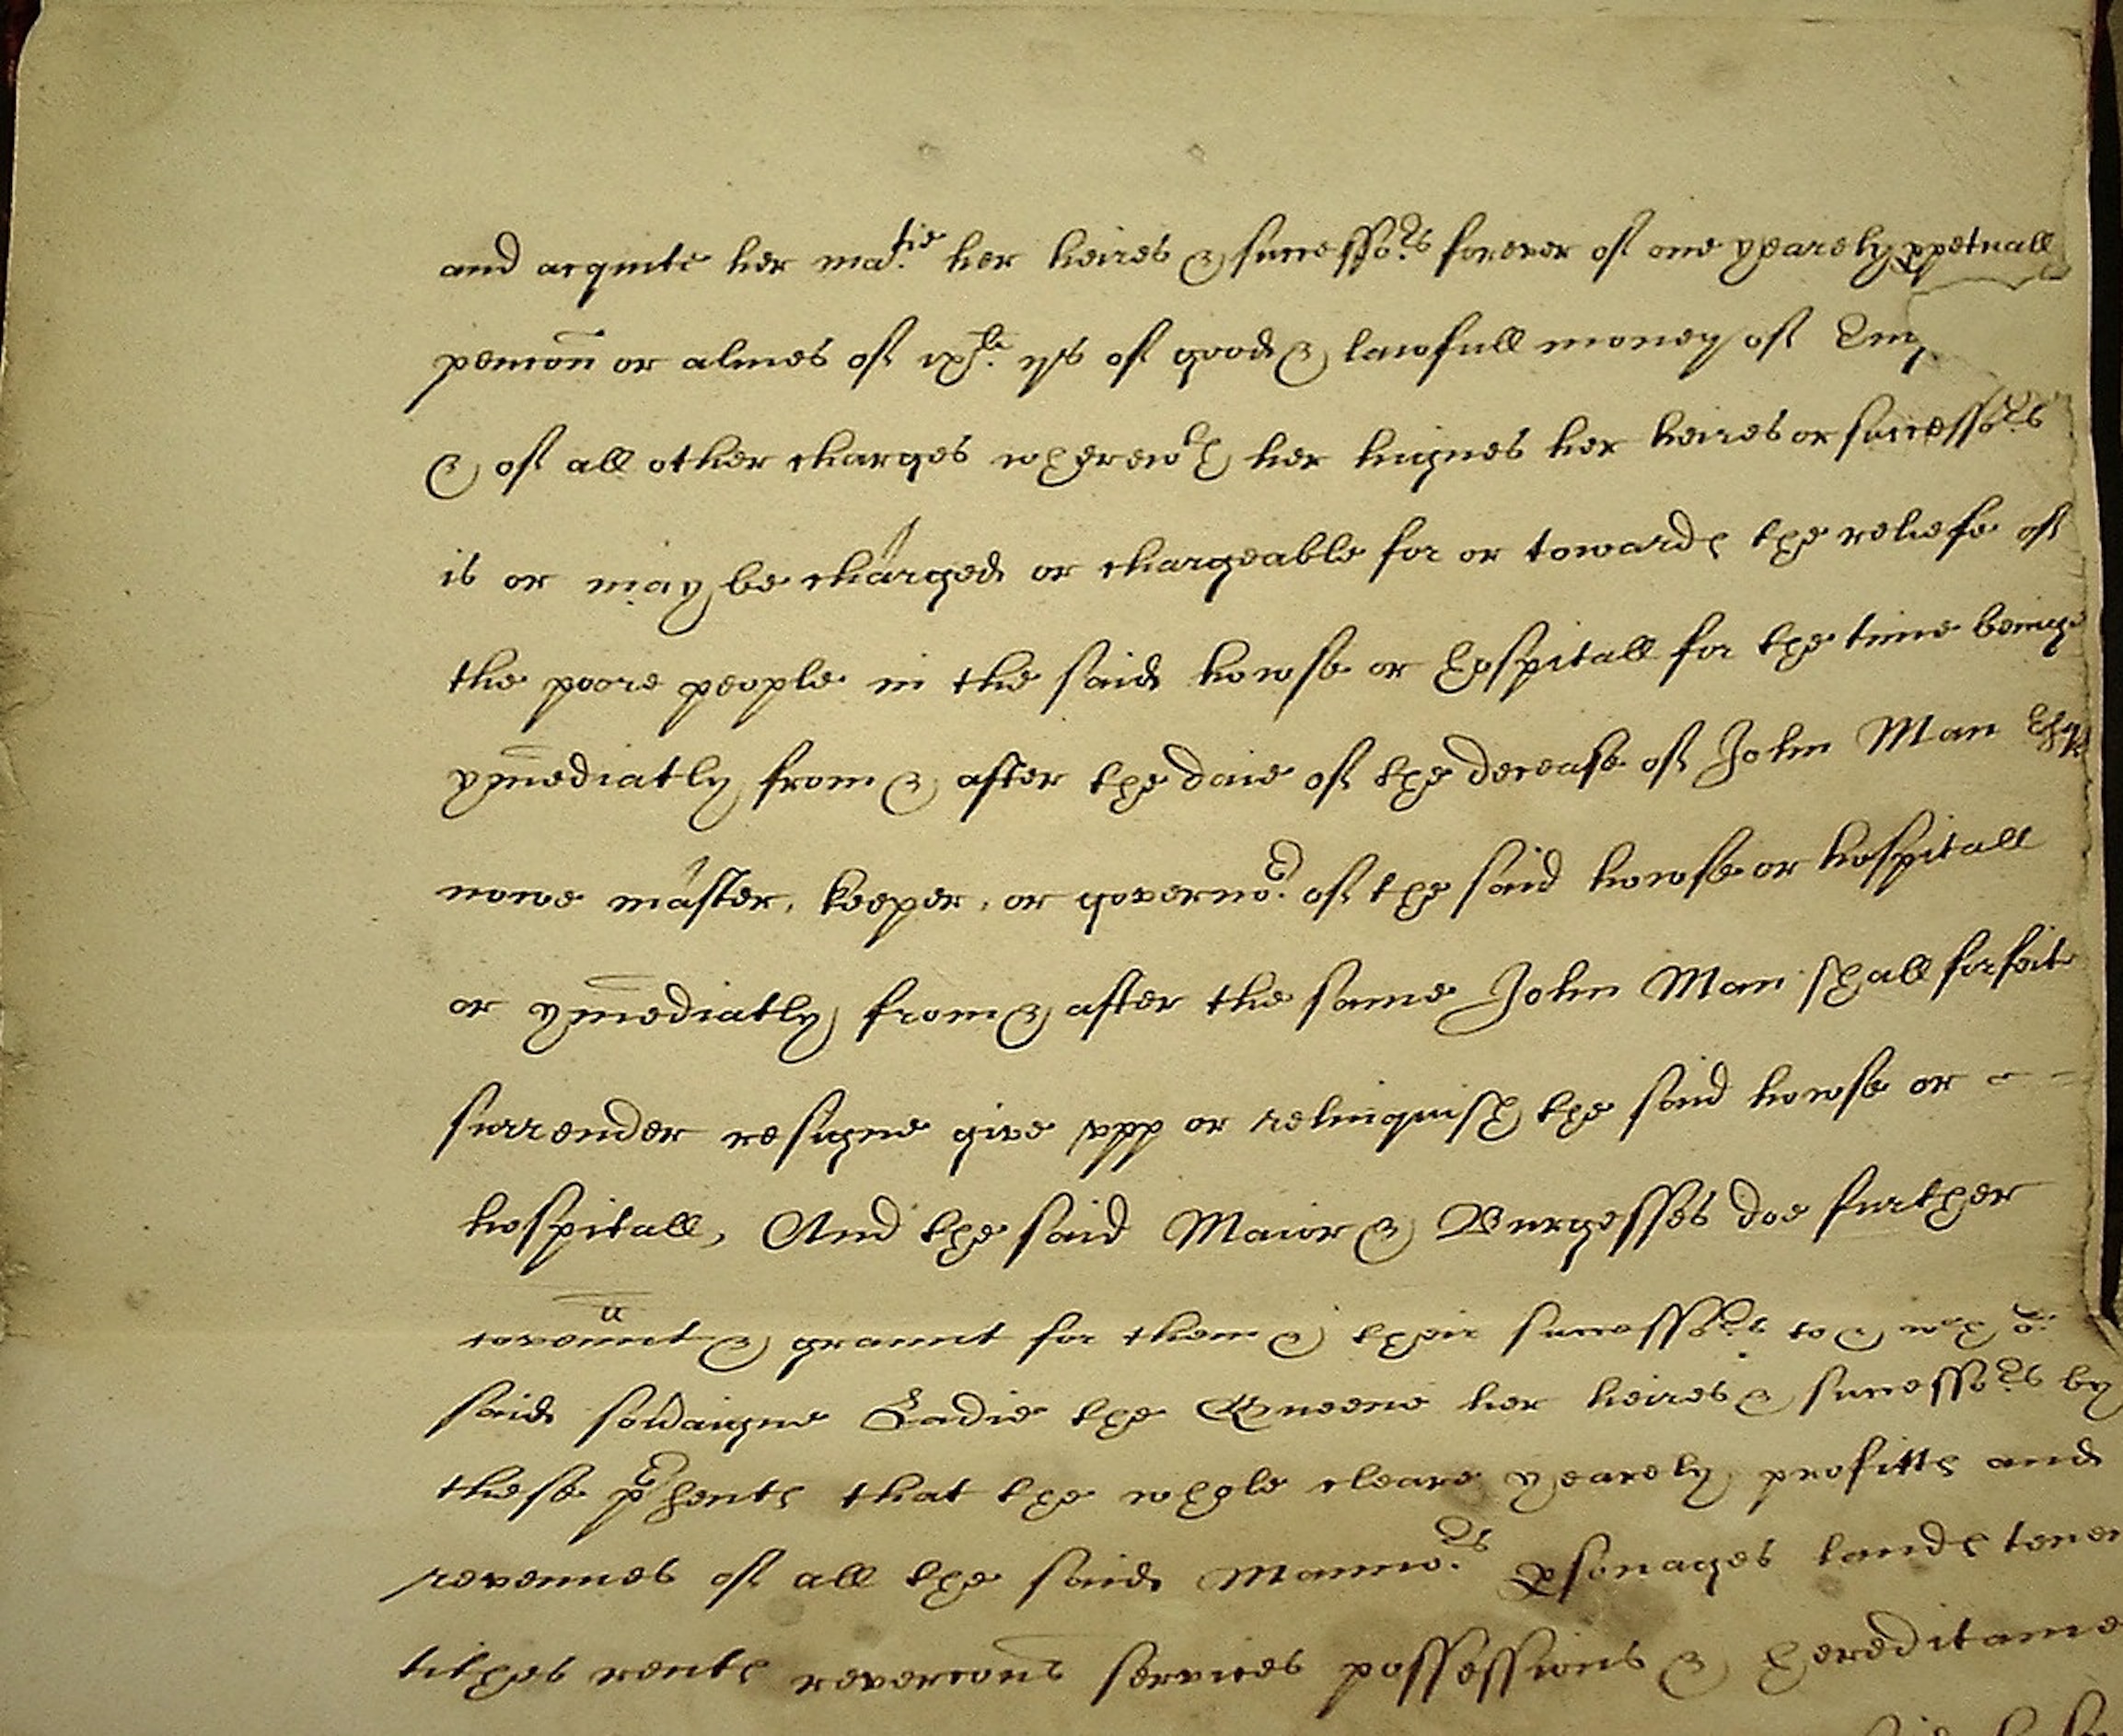 and acquite her ma.tie her heires & success.rs forever of one yearely ppetuall
pencoñ or almes of of good & lawfull money of Eng
& of all other charges wherewth her highnes her heires or success.rs
is or may be charged or chargeable for or towardes the reliefe of
the poore people in the said howse or hospitall for the time beinge
ymediatly from & after the daie of the decease of John Man
nowe master, keeper, or governo.r of the said howse or hospitall
or ymediatly from & after the same John Man shall forfeit
surrender resigne give vpp or relinquish the said howse or - -
hospitall, And the said Maior & Burgesses doe further
covennt & graunt for them & their success.rs to & wth
said sovaigne Ladie the Queene her heires & successo.rs by
these psents that the whole cleare yearely profitts and
revenues of all the said Manno.rs psonages landes tenem
tithes rentes revercons services possessions & hereditame